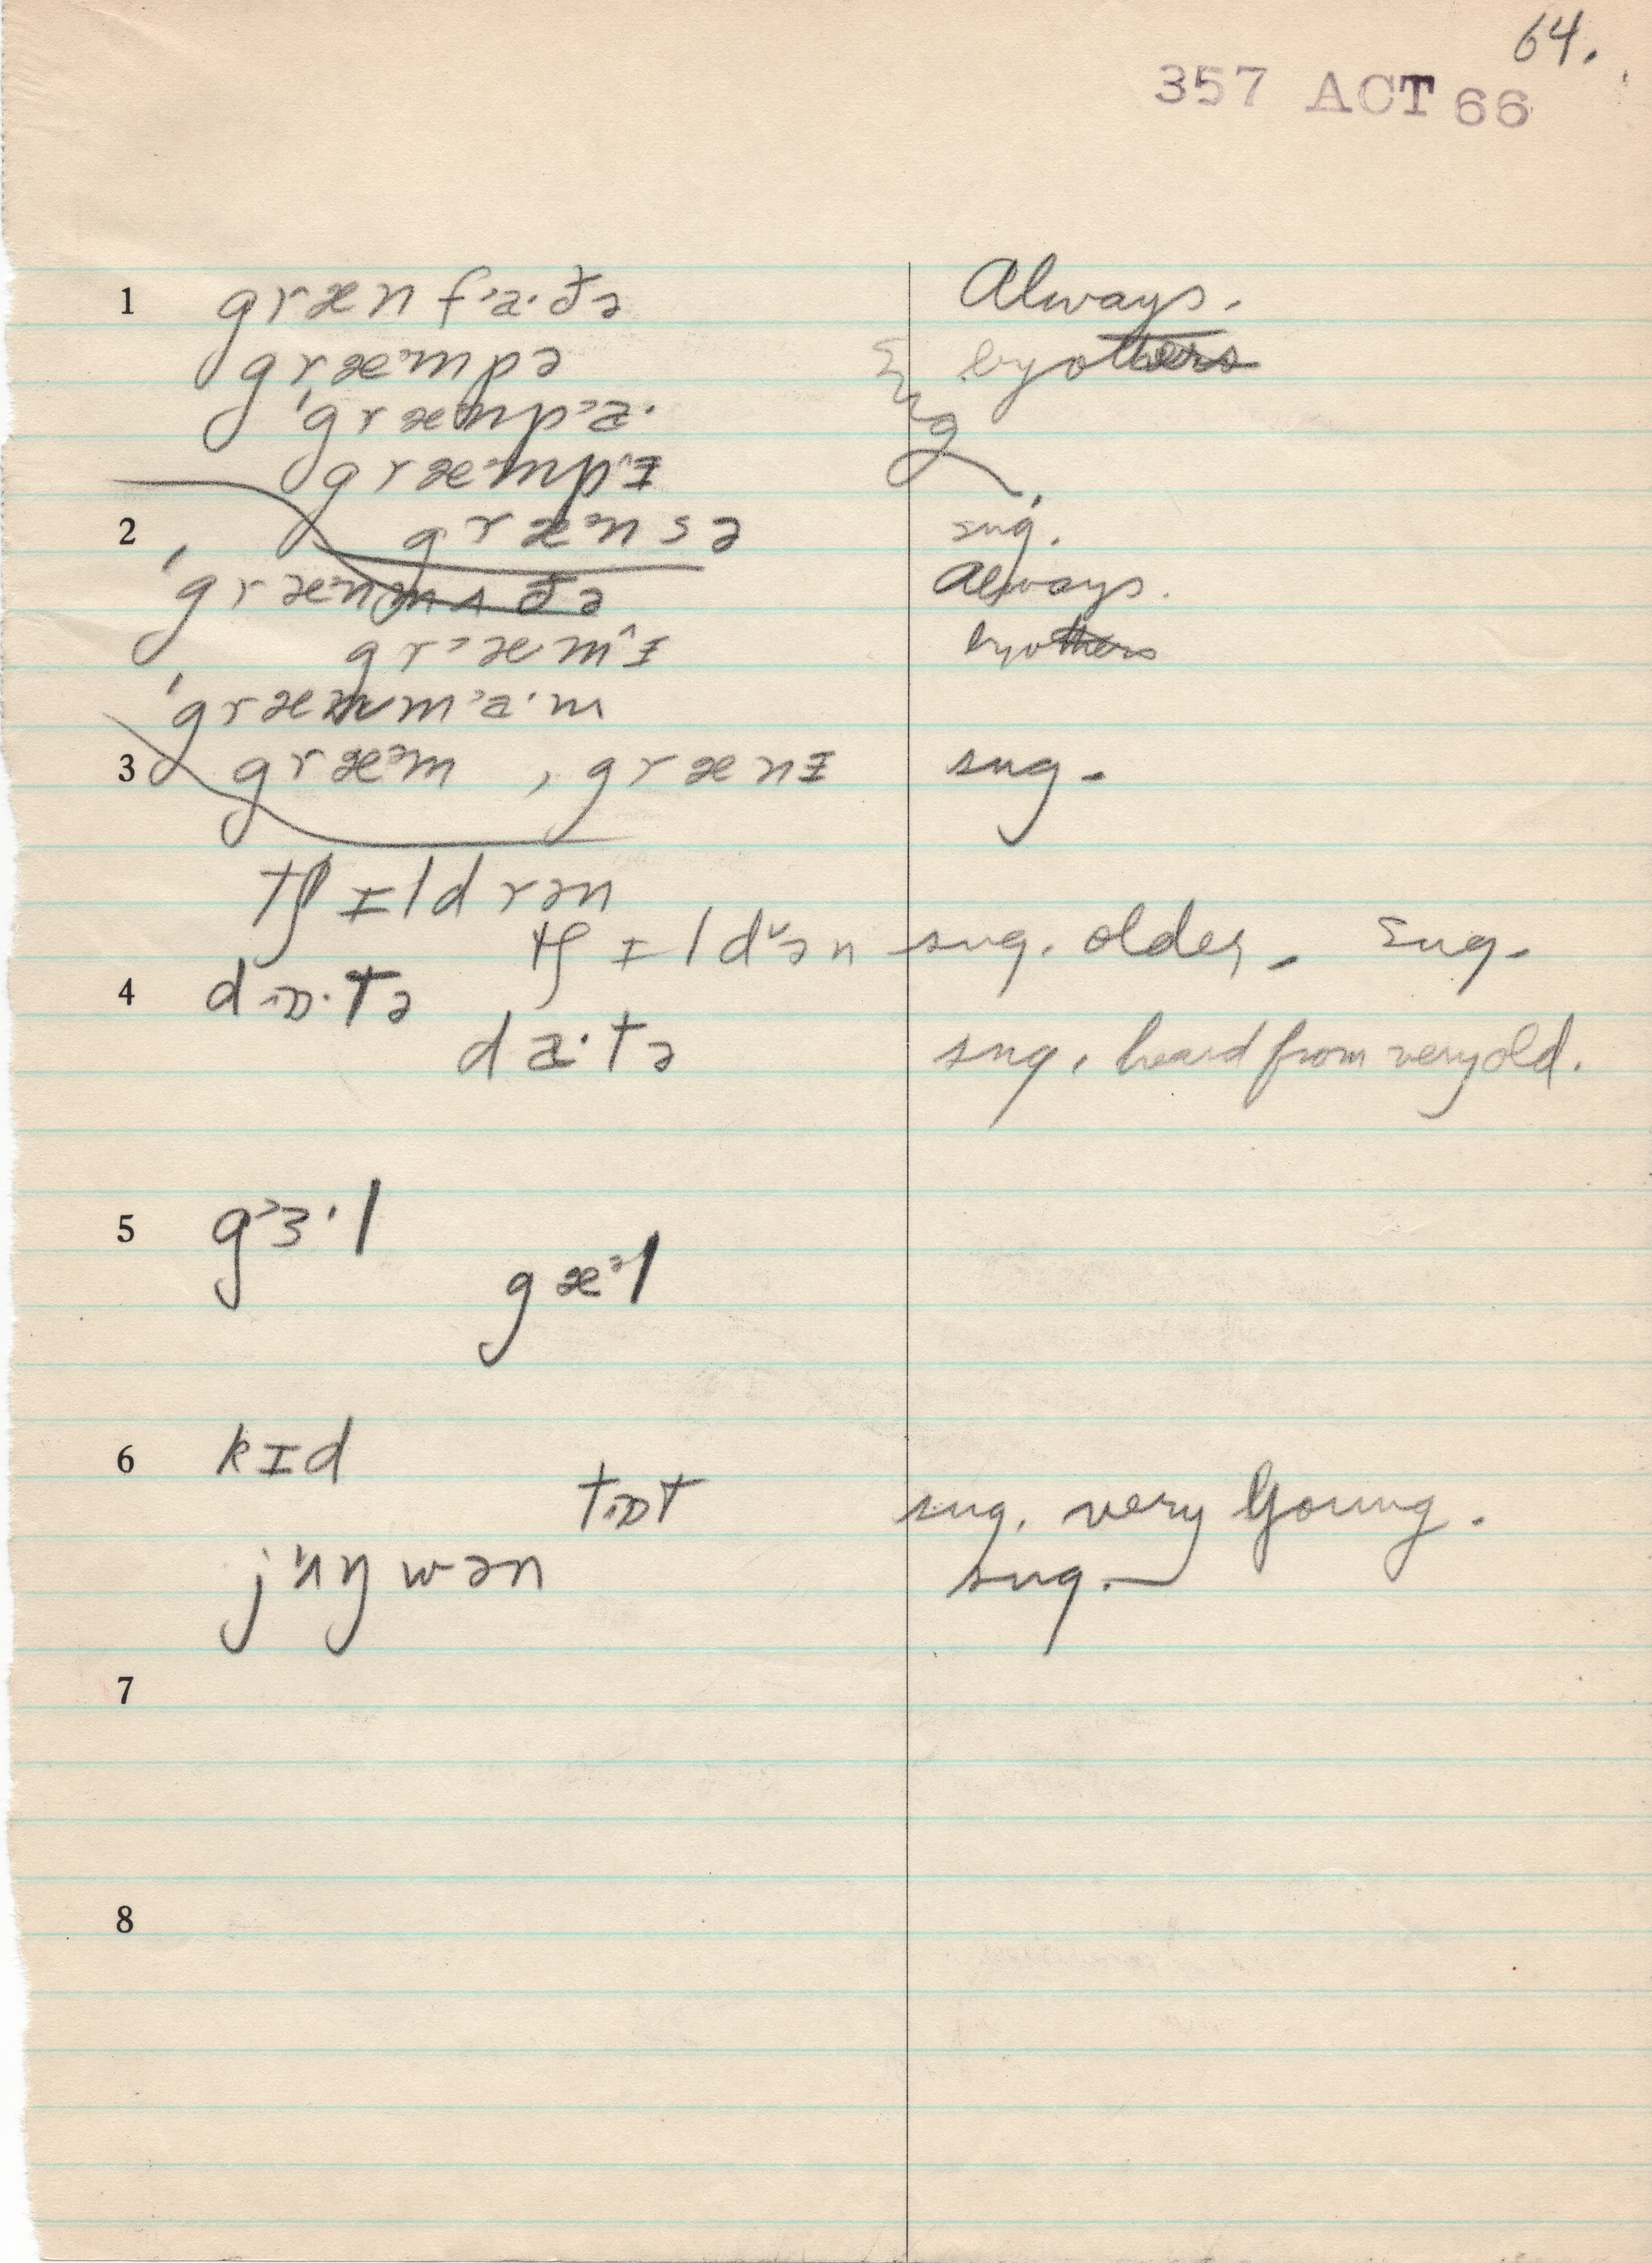 64.
357 ACT 66
1 grænfɑ·ðə Always.
græmpə by others
'græmpɑ·
græmpɪ
2 grænsə sug.
'grænmʌðə Always.
græmɪ by others
'græmmɑ·m
3 græᵊm , grænɪ sug.
tʃɪldrən
tʃɪldᶷən sug. older. sug.
4 dɒ·tə
dɑ·tə sug. heard from very old.
5 gɜ·l
gæᵊl
6 kɪd
tɒt sug. very young.
jʌŋwən sug.
7
8